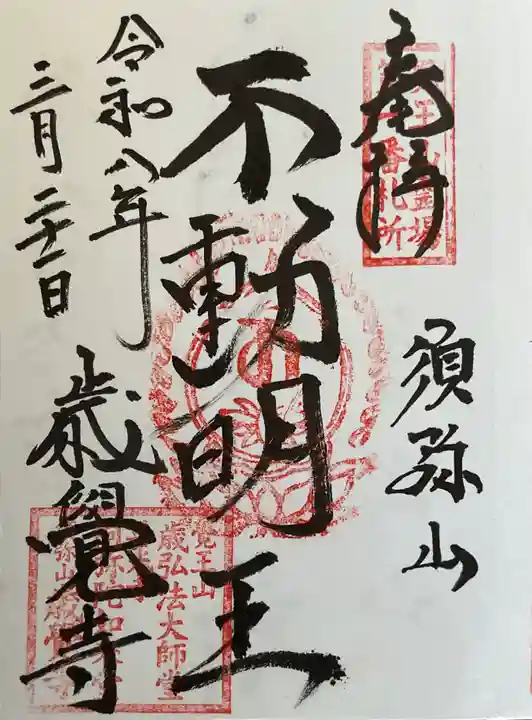 奉拝
須弥山
不動明王
令和八年
三月二十一日
歳覺寺
番札所
覚王山
歳弘法大師堂